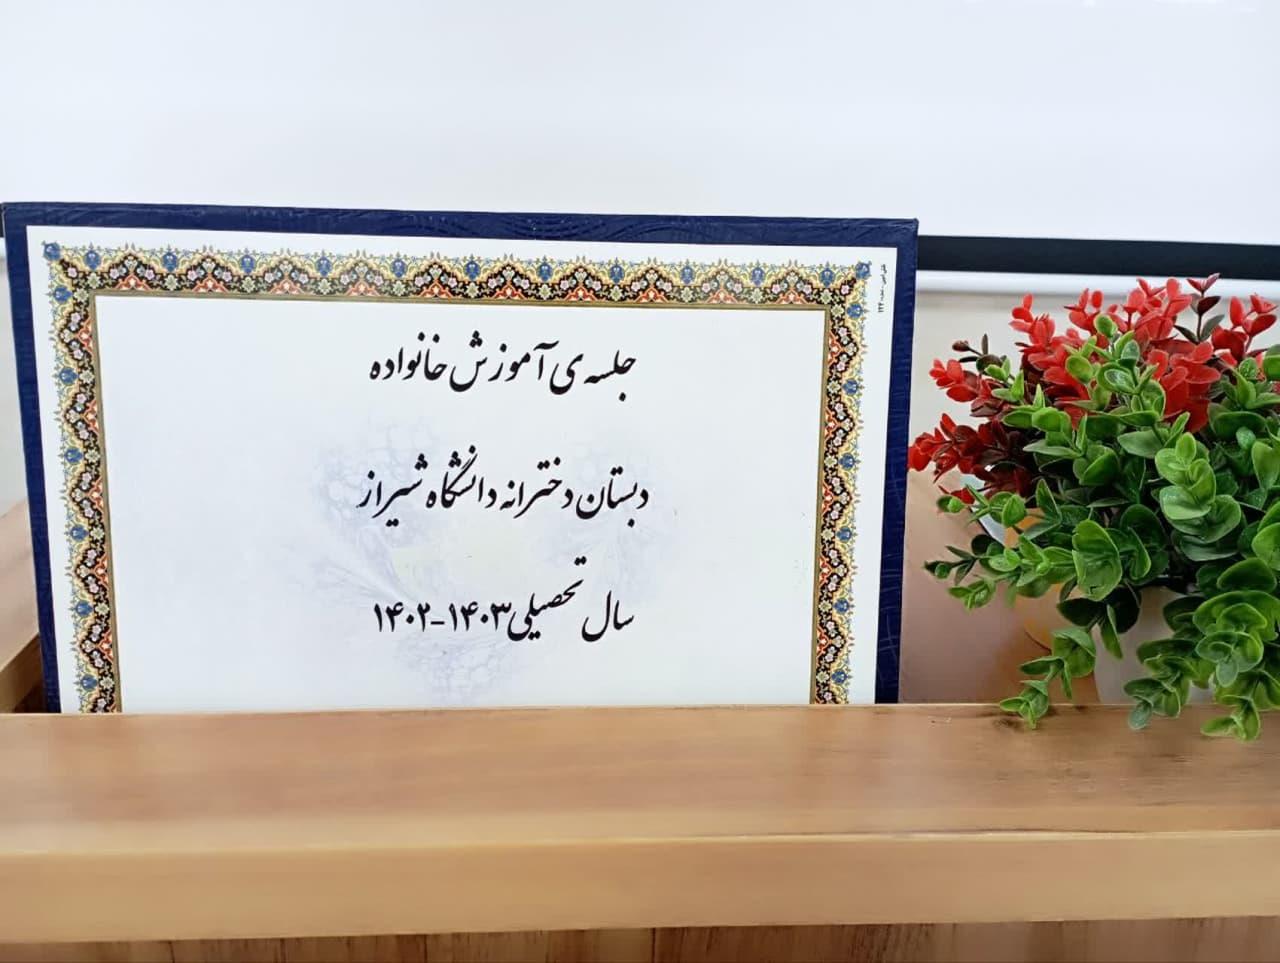 جلسه ی آموزش خانواده
دبستان دخترانه دانشگاه شیراز
سال تحصیلی ۱۴۰۳-۱۴۰۲